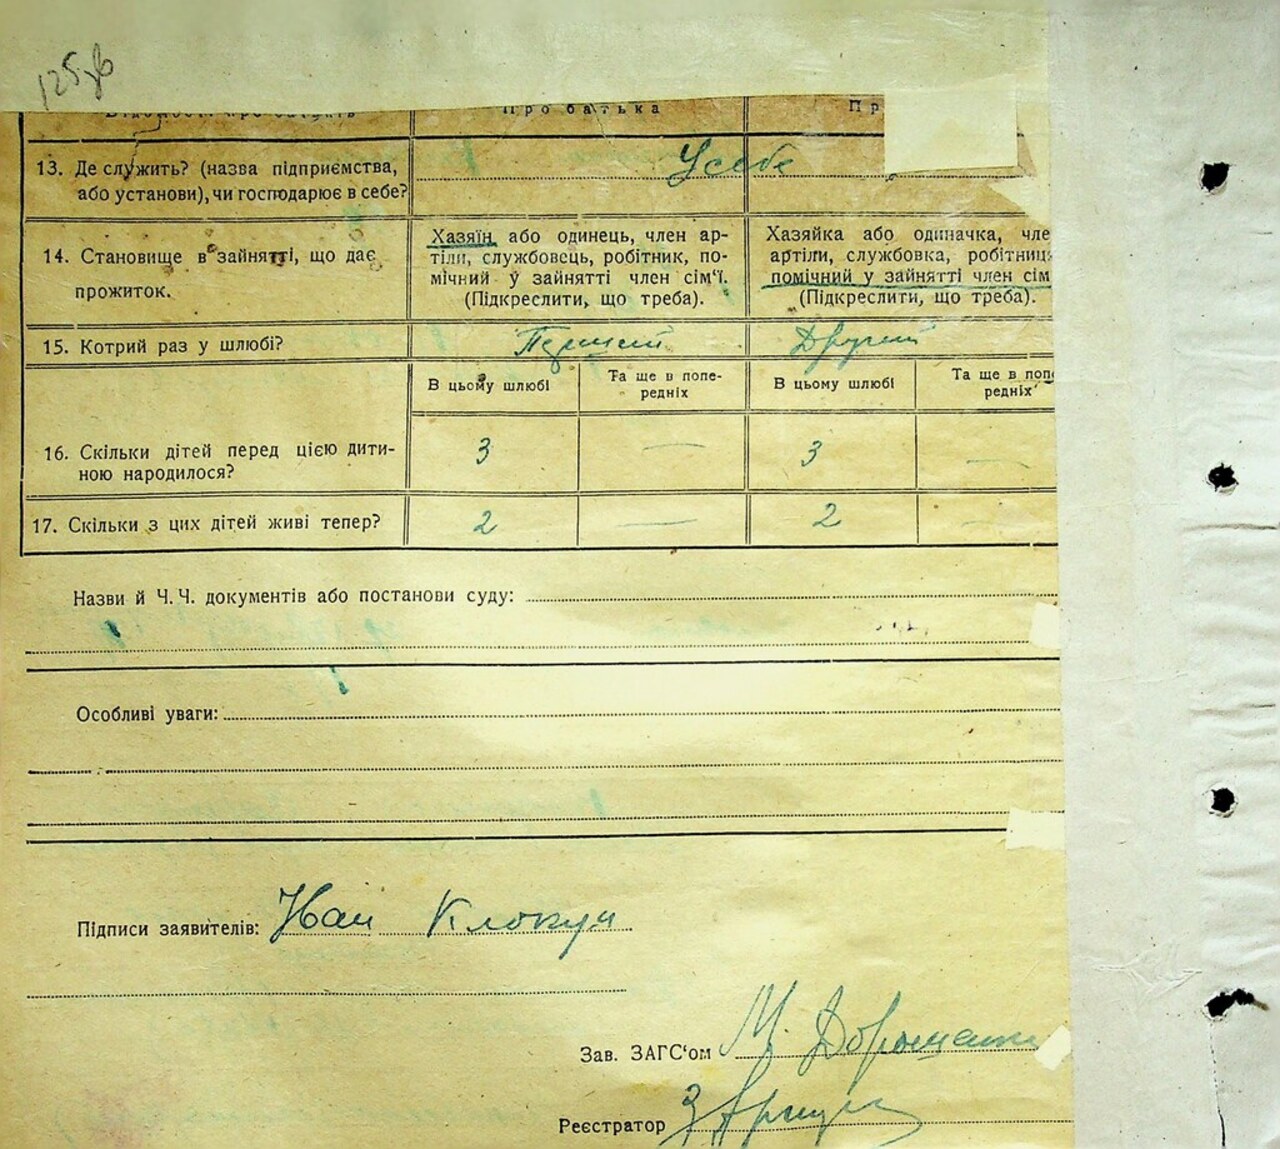 125 зв
Відомості про батьків Про батька Пр
13. Де служить? (назва підприємства, або установи), чи господарює в себе? У себе
14. Становище в зайнятті, що дає прожиток.
Хазяїн або одинець, член ар-
тіли, службовець, робітник, по-
мічний у зайнятті член сім'ї.
(Підкреслити, що треба).
Хазяйка або одиначка, чле
артіли, службовка, робітниц
помічний у зайнятті член сім
(Підкреслити, що треба).
15. Котрий раз у шлюбі? Перший Другий
В цьому шлюбі Та ще в попе-
редніх В цьому шлюбі Та ще в попе
редніх
16. Скільки дітей перед цією дити-
ною народилося? 3 — 3 —
17. Скільки з цих дітей живі тепер? 2 — 2 —
Назви й Ч.Ч. документів або постанови суду:
Особливі уваги:
Підписи заявителів: Иван Клокун
Зав. ЗАГС'ом М. Дорошенко
Реєстратор